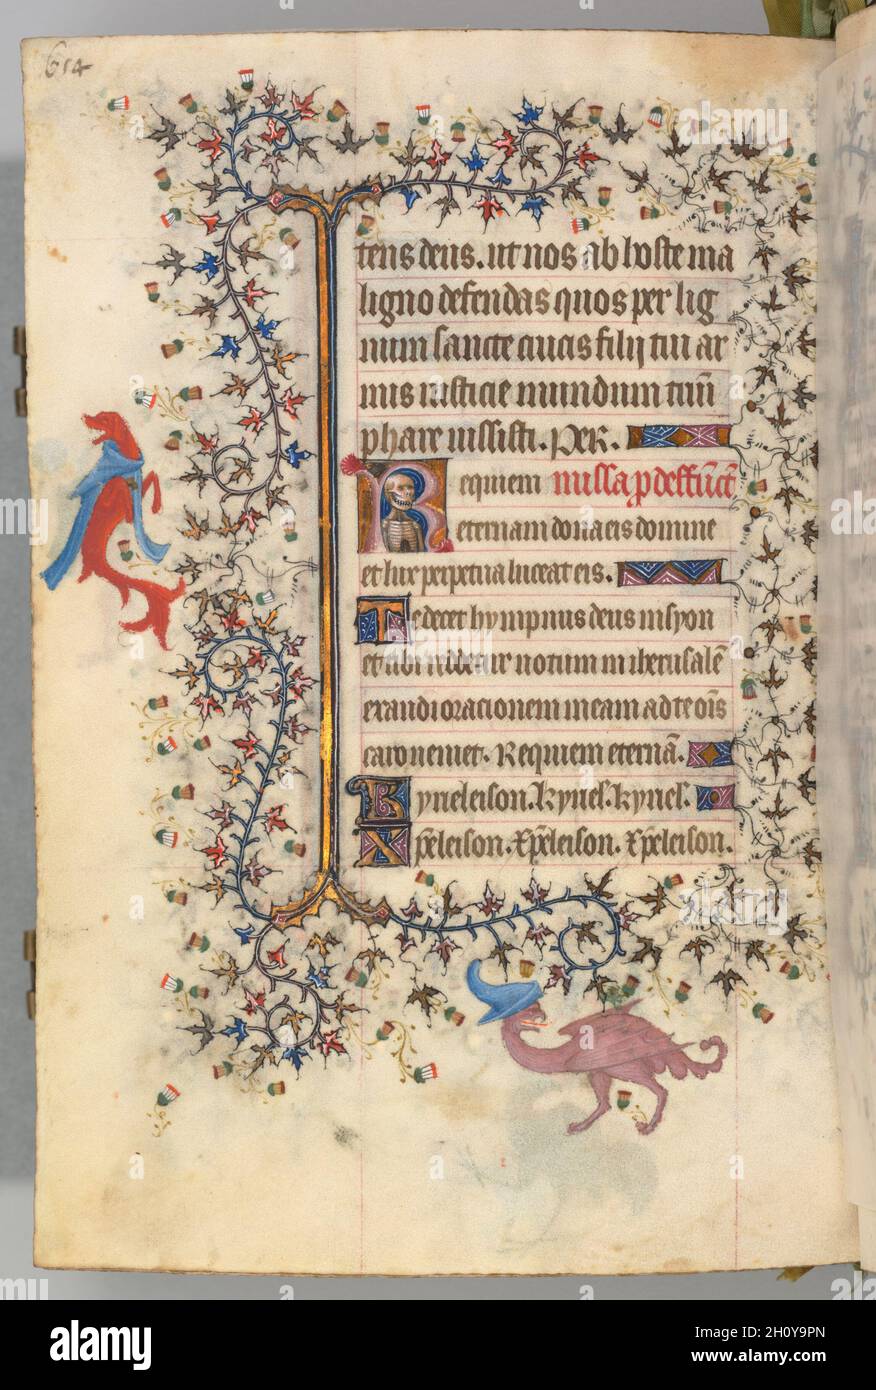 614
tens deus. ut nos ab hoste ma
ligno defendas quos per lig
num sancte crucis filij tui ar
mis iusticie mundum trium
phare iussisti. Per.
Requiem missa p deffunct
eternam dona eis domine
et lux perpetua luceat eis.
Te decet hympnus deus in syon
et tibi reddetur votum in iherusalē
exaudi oracionem meam ad te oīs
caro veniet. Requiem eternā.
Kyrieleison. kyriel. kyriel.
Xp̄eleison. Xp̄eleison. Xp̄eleison.
alamy
Image ID: 2H0Y9PN
www.alamy.com